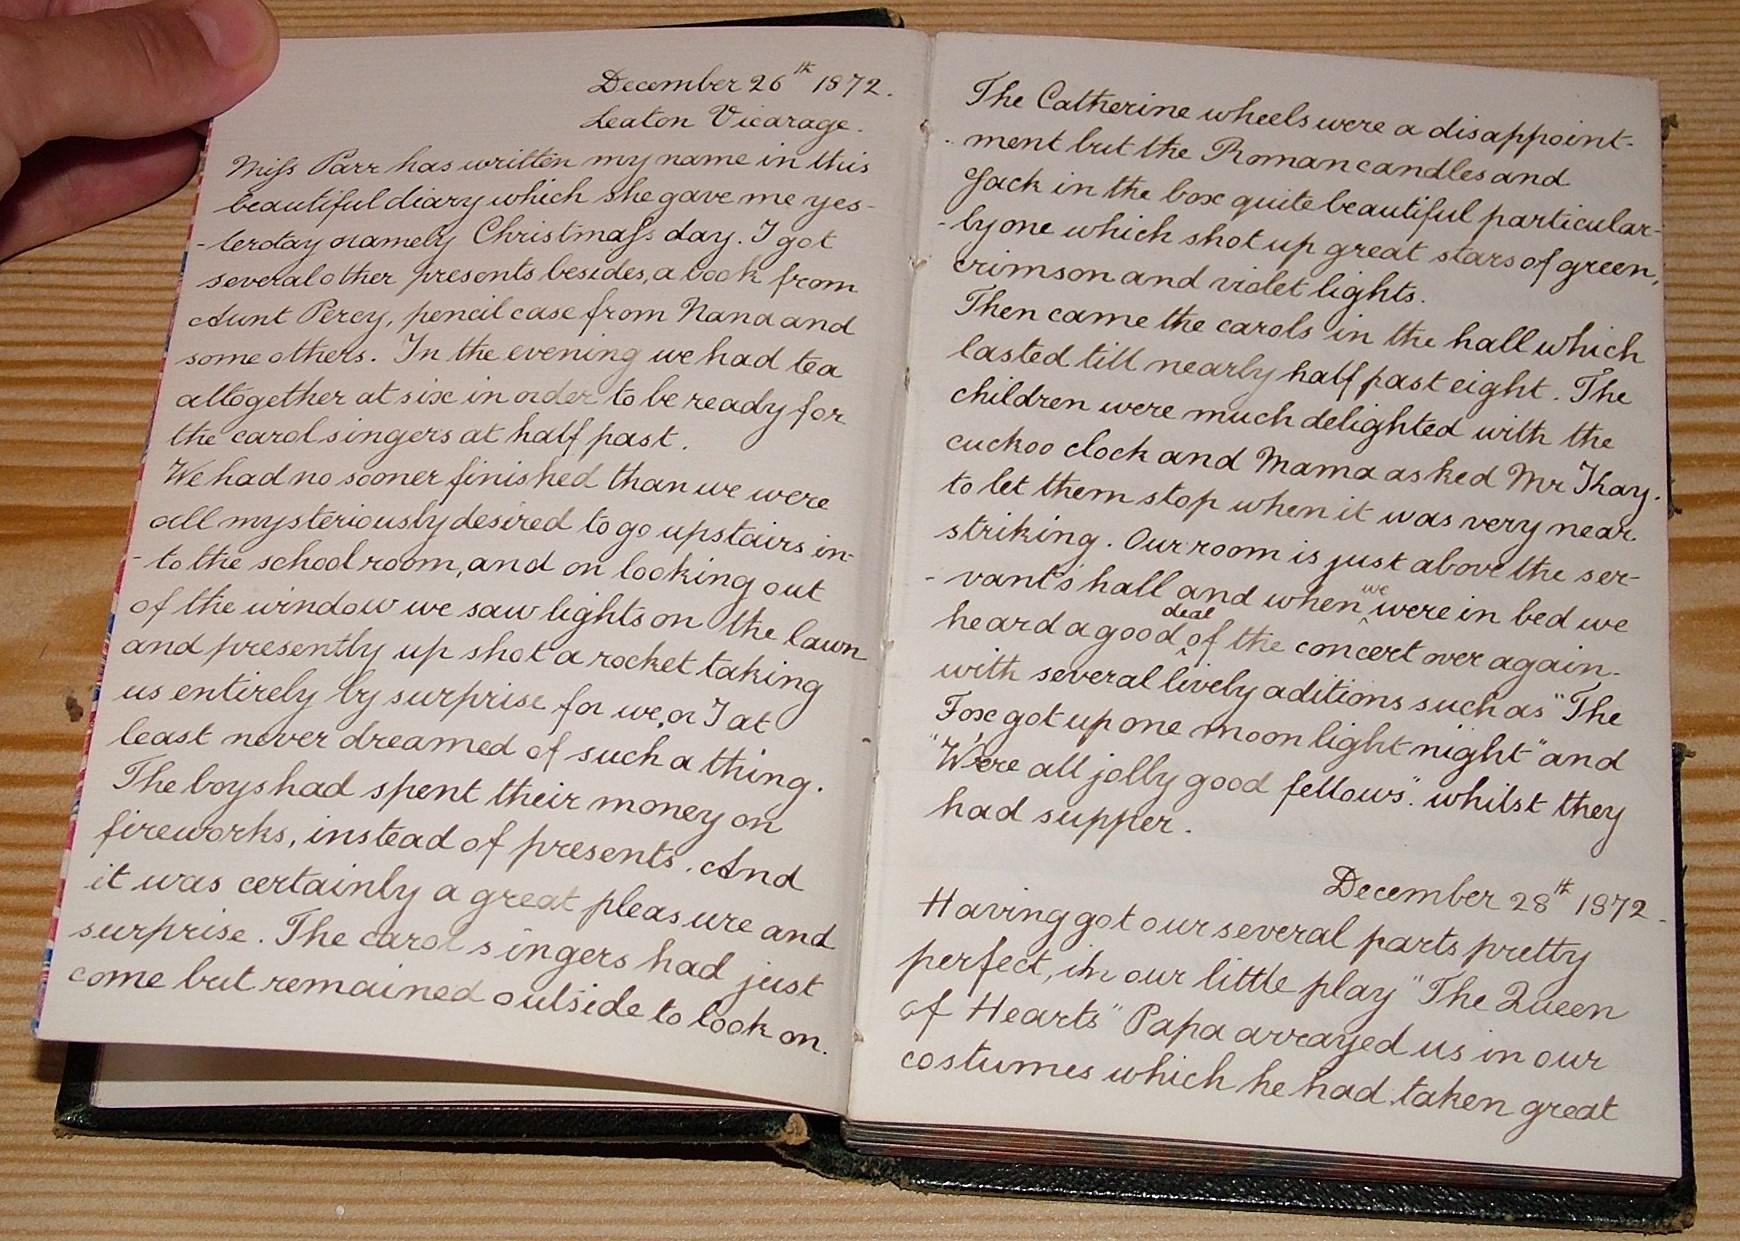 December 26th 1872.
Leaton Vicarage.
Miſs Parr has written my name in this
beautiful diary which she gave me yes-
-terday namely Christmaſs day. I got
several other presents besides, a book from
Aunt Percy, pencil case from Nana and
some others. In the evening we had tea
altogether at six in order to be ready for
the carol singers at half past.
We had no sooner finished than we were
all mysteriously desired to go upstairs in-
-to the school room, and on looking out
of the window we saw lights on the lawn
and presently up shot a rocket taking
us entirely by surprise for we, or I at
least never dreamed of such a thing.
The boys had spent their money on
fireworks, instead of presents. And
it was certainly a great pleasure and
surprise. The carol singers had just
come but remained outside to look on.
The Catherine wheels were a disappoint-
-ment but the Roman candles and
Jack in the box quite beautiful particular-
-ly one which shot up great stars of green,
crimson and violet lights.
Then came the carols in the hall which
lasted till nearly half past eight. The
children were much delighted with the
cuckoo clock and Mama asked Mr Kay.
to let them stop when it was very near
striking. Our room is just above the ser-
-vant's hall and when we were in bed we
heard a good deal of the concert over again.
with several lively aditions such as "The
Fox got up one moon light night" and
"We're all jolly good fellows". whilst they
had supper.
December 28th 1872.
Having got our several parts pretty
perfect, in our little play "The Queen
of Hearts" Papa arrayed us in our
costumes which he had taken great